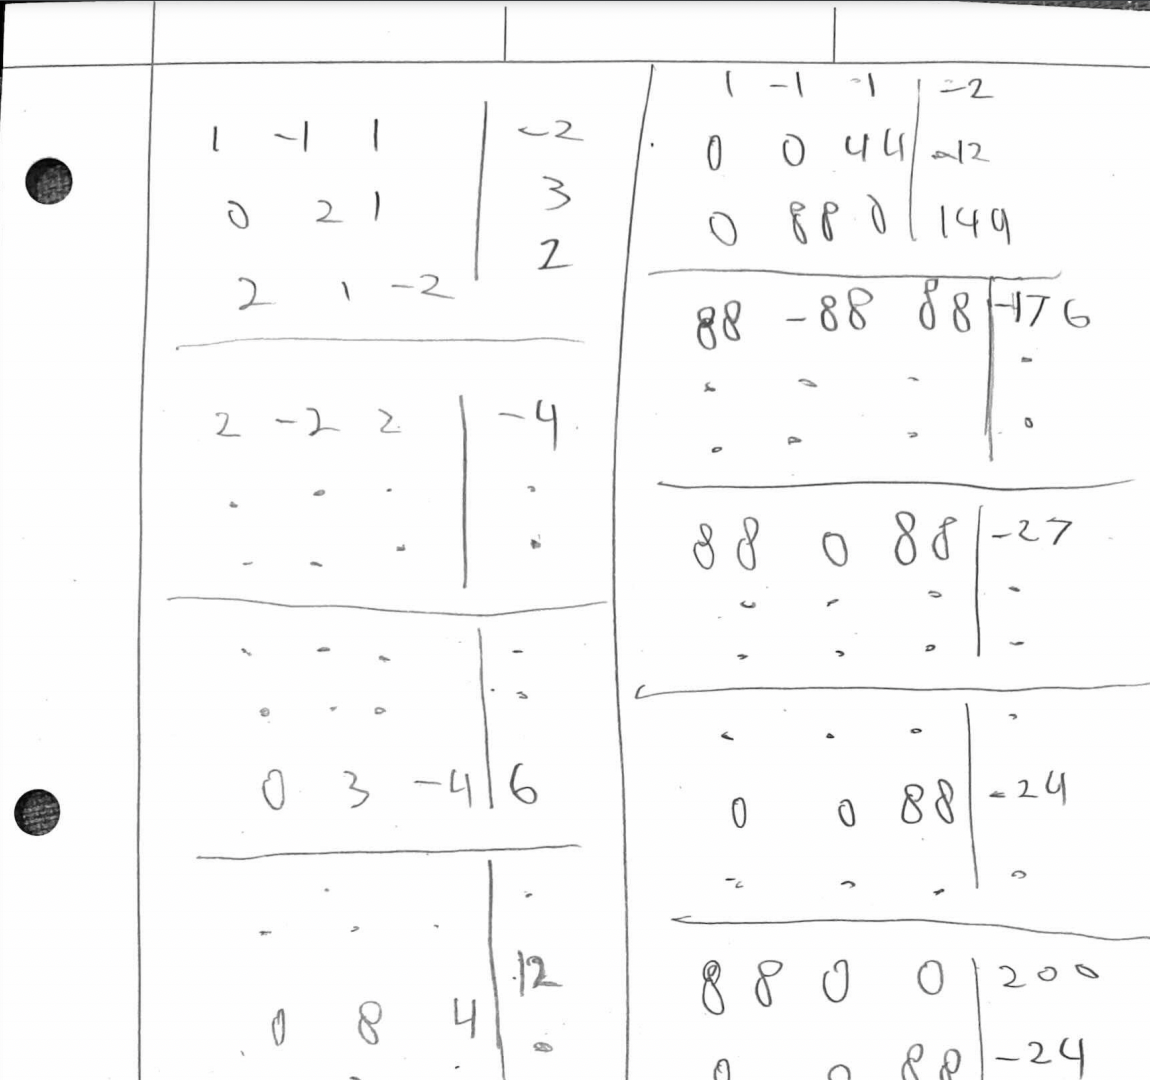 1 -1 1 | -2
0 2 1 | 3
2 1 -2 | 2
2 -2 2 | -4
. . . | .
. . . | .
. . . | .
. . . | .
0 3 -4 | 6
. . . | .
0 8 4 | 12
1 -1 -1 | -2
0 0 44 | -12
0 88 0 | 149
88 -88 88 | -176
. . . | .
. . . | .
88 0 88 | -27
. . . | .
. . . | .
. . . | .
0 0 88 | -24
. . . | .
88 0 0 | 200
0 0 88 | -24